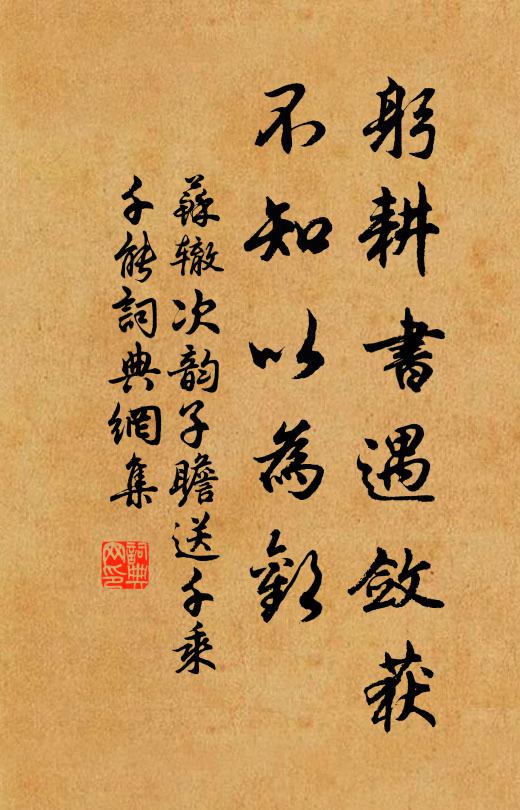 躬耕書遇斂获
不知以為歡
蘇辙次韵子瞻送千乘
千能詞典網集
詞典网印